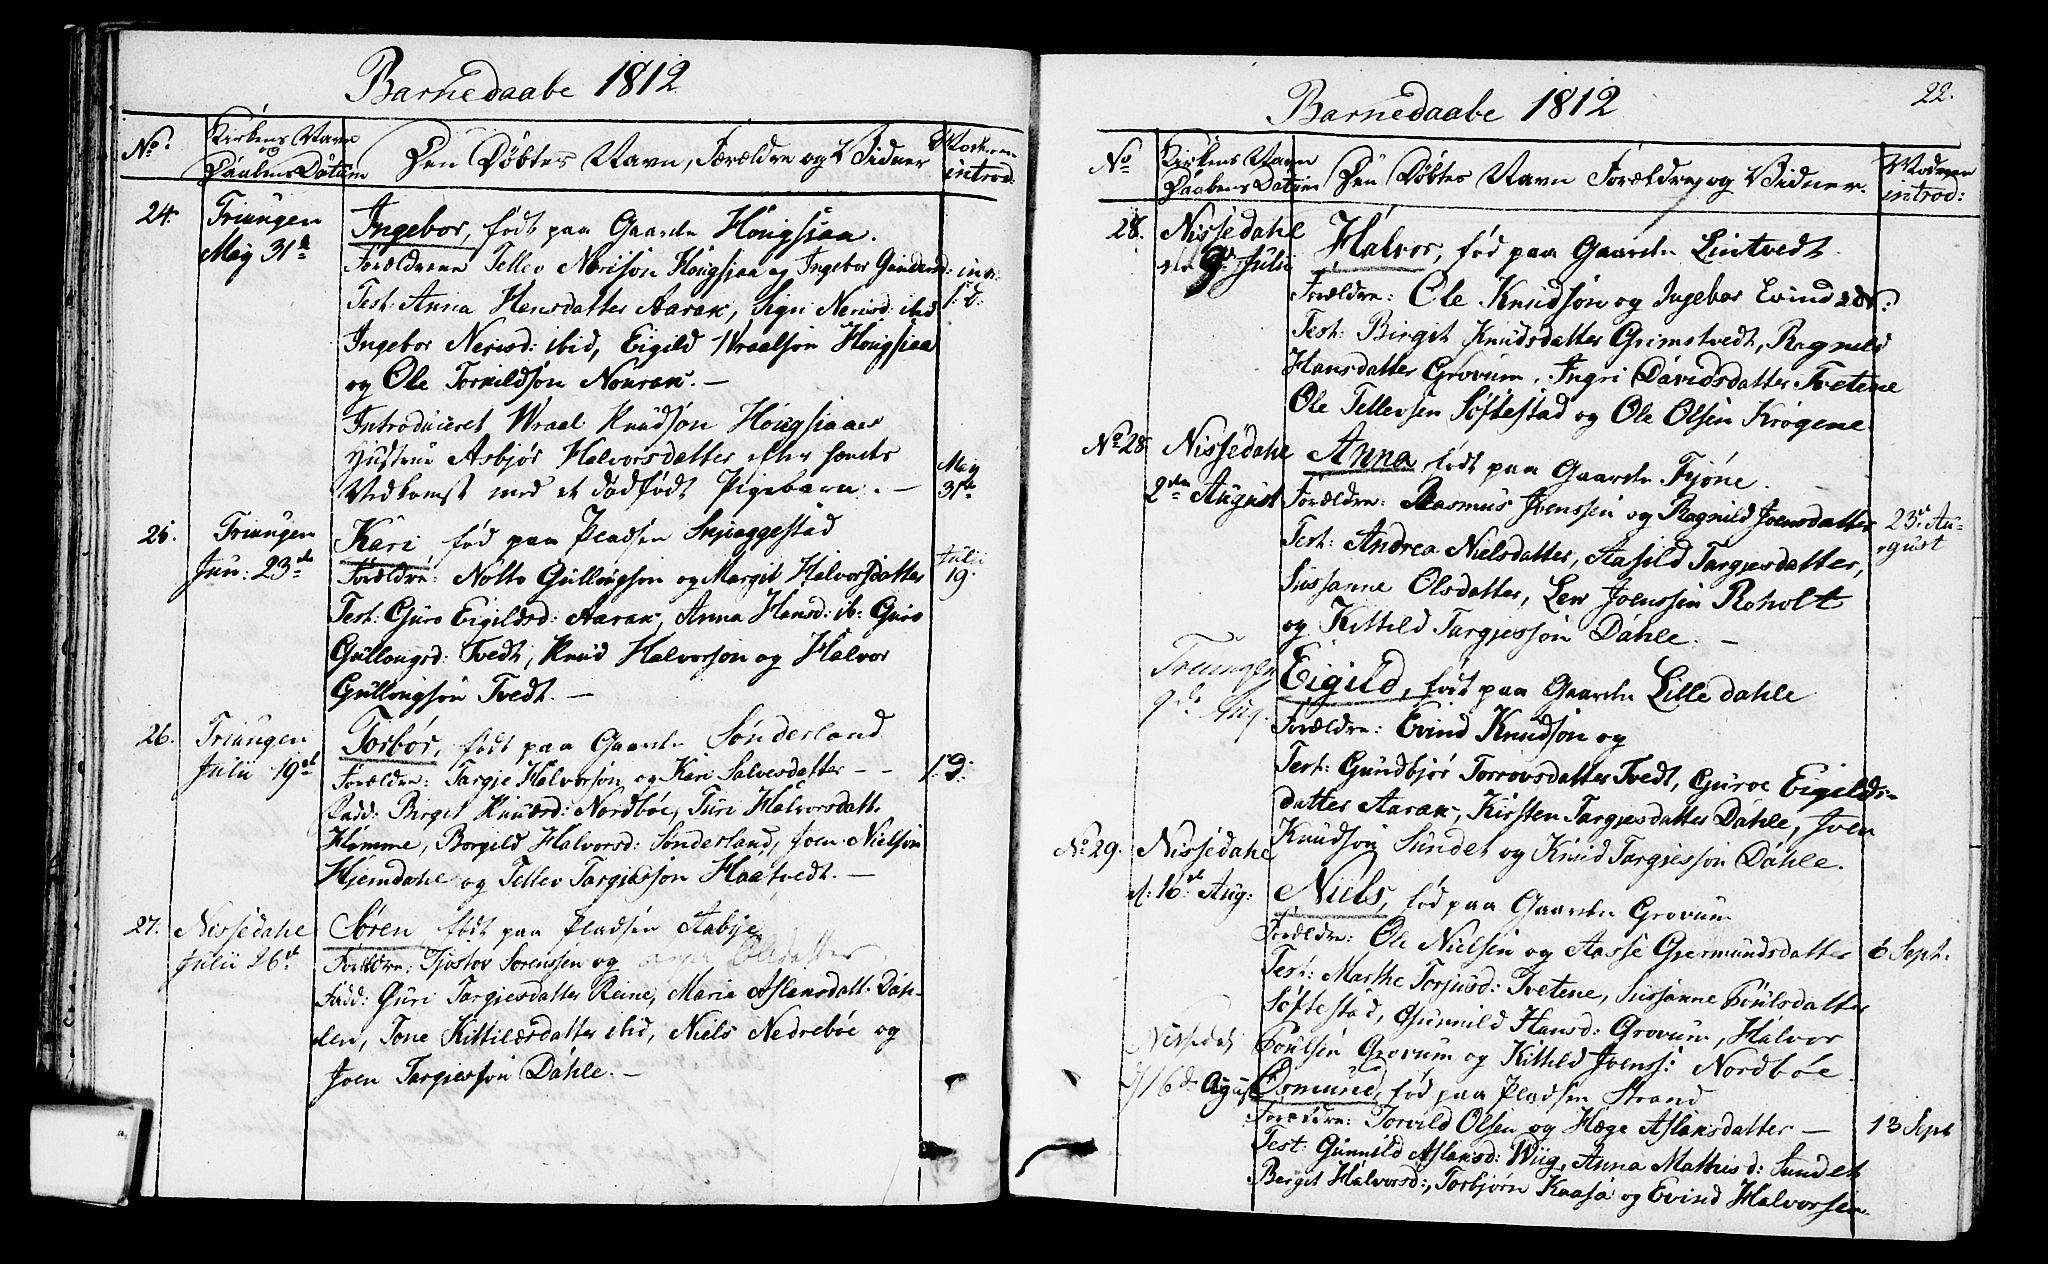 Barnedaabe 1812
No. Kirkens Navn og Daabens Datum Den Döbtes Navn, Forældre og Vidner Moderen introd:
24. Triungen May 31te
Ingebor, födt paa Gaarden Hougsiaa.
Forældrene Tellev Nerison Hougsiaa og Ingebor
Test: Anna Hansdatter Aarak, Sigri Nerisd: ibid
Ingebor Nerisd: ibid, Eigild Wraalson Hougsiaa
og Ole Torkildson Nourak. —
Introduceret Wraal Knudsön Hougsiaaes
Hustrue Asbjör Halvorsdatter efter hendes
Vedkomst med et dödfödt Pigebarn. — May 31te
25. Triungen Jun: 23de
Kari föd paa Pladsen
Forældre: Notto Gullongson og Margit Halvorsdatter Julii 19.
Test: Guro Eigildsd: Aarak, Anna Hansd: ib: Guro
Gullongsd: Tvedt, Knud Halvorson og Halvor
Gullongsön Tvedt. —
26. Triungen Julii 19de
Torbor, födt paa Gaarden Sönderland
Forældre: Targie Halvorsön og Kari Salvesdatter - - I: D:
Fadd: Birget Knudsd: Nordböe, Turi Halvorsdatt.
Hömme, Borgild Halvorsd: Sönderland, Joen Nielsön
Hjemdahl og Tellev Targiesson Haatvedt. —
27. Nissedahl Julii 26de
Sören födt paa Pladsen Aabye
Forældre: Tjostov Sorenssen og Olsdatter
Fadd: Guri Targiesdatter Reine, Maria Aslansdatt. Dah-
len, Tone Kittilsdatter ibid, Niels Nedreböe og
Joen Targiesson Dahle. —
22.
Barnedaabe 1812
No Kirkens Navn Daabens Datum Den Döbtes Navn Forældre og Vidner. Moderen introd:
28. Nissedahl Julii
Halvor, föd paa Gaarden Lintvedt
Forældre: Ole Knudsön og Ingebor Evindsdr:
Test: Birgit Knudsdatter Grimstvedt, Ragnild
Hansdatter Grovum, Ingri Davidsdatter Tvetene
Ole Tellevsen Söftestad og Ole Olsen Krogene
No 28 Nissedahl 2den August
Anna födt paa Gaarden Fjöne.
Forældre: Rasmus Joenssen og Ragnild Joensdatter 23de Au-
gust
Test: Andrea Nielsdatter, Aasild Targiesdatter,
Sussanne Olsdatter, Lew Joenssen Roholt
og Kittild Targiessön Dahle. —
Treungen 9de Aug.
Eigild, födt paa Gaarden Lille dahle
Forældre: Evind Knudsön og
Test: Gundbjör Torrovsdatter Tvedt, Guroe Eigilds-
datter Aarak, Kirsten Targiesdatter Dahle, Joen
Knudsön Sundet og Knud Targiessön Dahle.
No 29. Nissedahl d: 16de Aug:
Niels, föd paa Gaarden Grovum
Forældre: Ole Nielsen og Aasse Gjermundsdatter 6 Sept.
Test: Marthe Torjusd: Tvetene, Sussanne Poulsdatter
Söftestad, Gunnild Hansd: Grovum, Halvor
Poulsen Grovum og Kittild Joenss: Nordböe
Nissedal 16de August
Osmund, föd paa Pladsen Strand
Forældre: Torvild Olsen og Hæge Aslansdatter — 13 Sept
Test: Gunnild Aslansd: Wiig, Anna Mathisd: Sundet
Berget Halvorsd:, Torbjörn Kaasa og Evind Halvorsen.